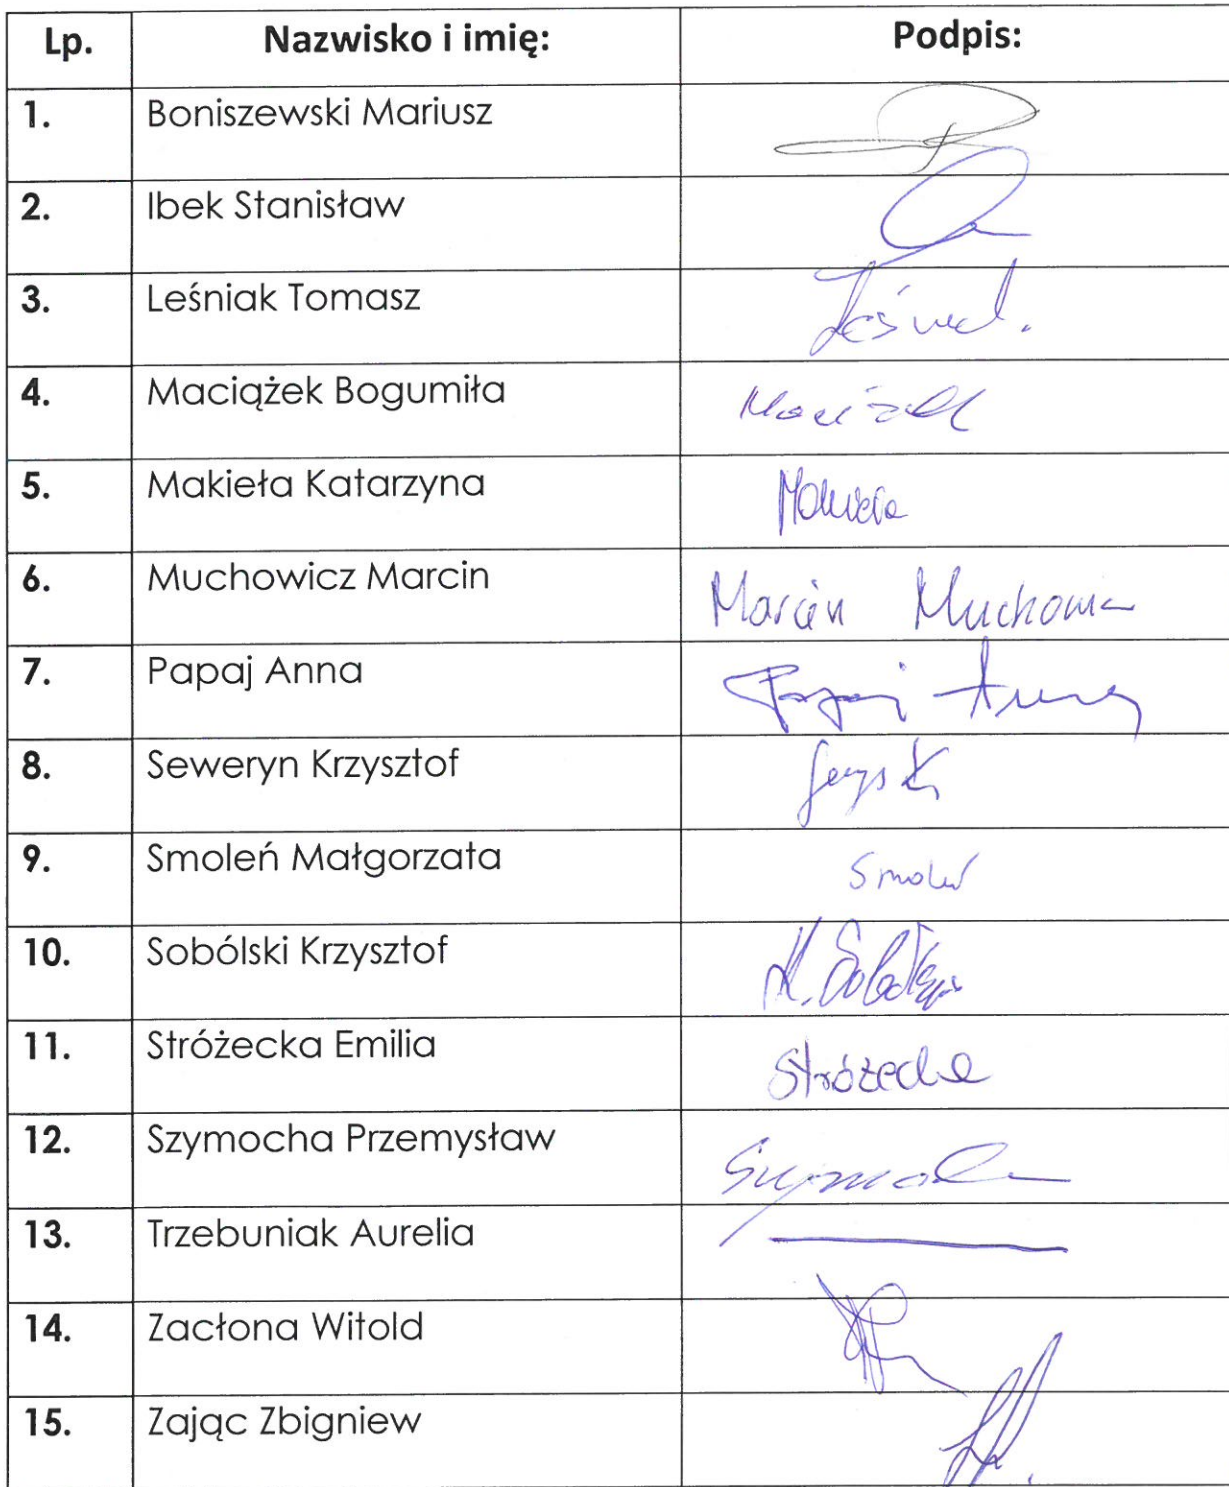 Lp. Nazwisko i imię: Podpis:
1. Boniszewski Mariusz
2. Ibek Stanisław
3. Leśniak Tomasz
4. Maciążek Bogumiła
5. Makieła Katarzyna
6. Muchowicz Marcin Marcin
7. Papaj Anna Papaj Anna
8. Seweryn Krzysztof
9. Smoleń Małgorzata Smoleń
10. Sobólski Krzysztof
11. Stróżecka Emilia Stróżecka
12. Szymocha Przemysław
13. Trzebuniak Aurelia
14. Zacłona Witold
15. Zając Zbigniew